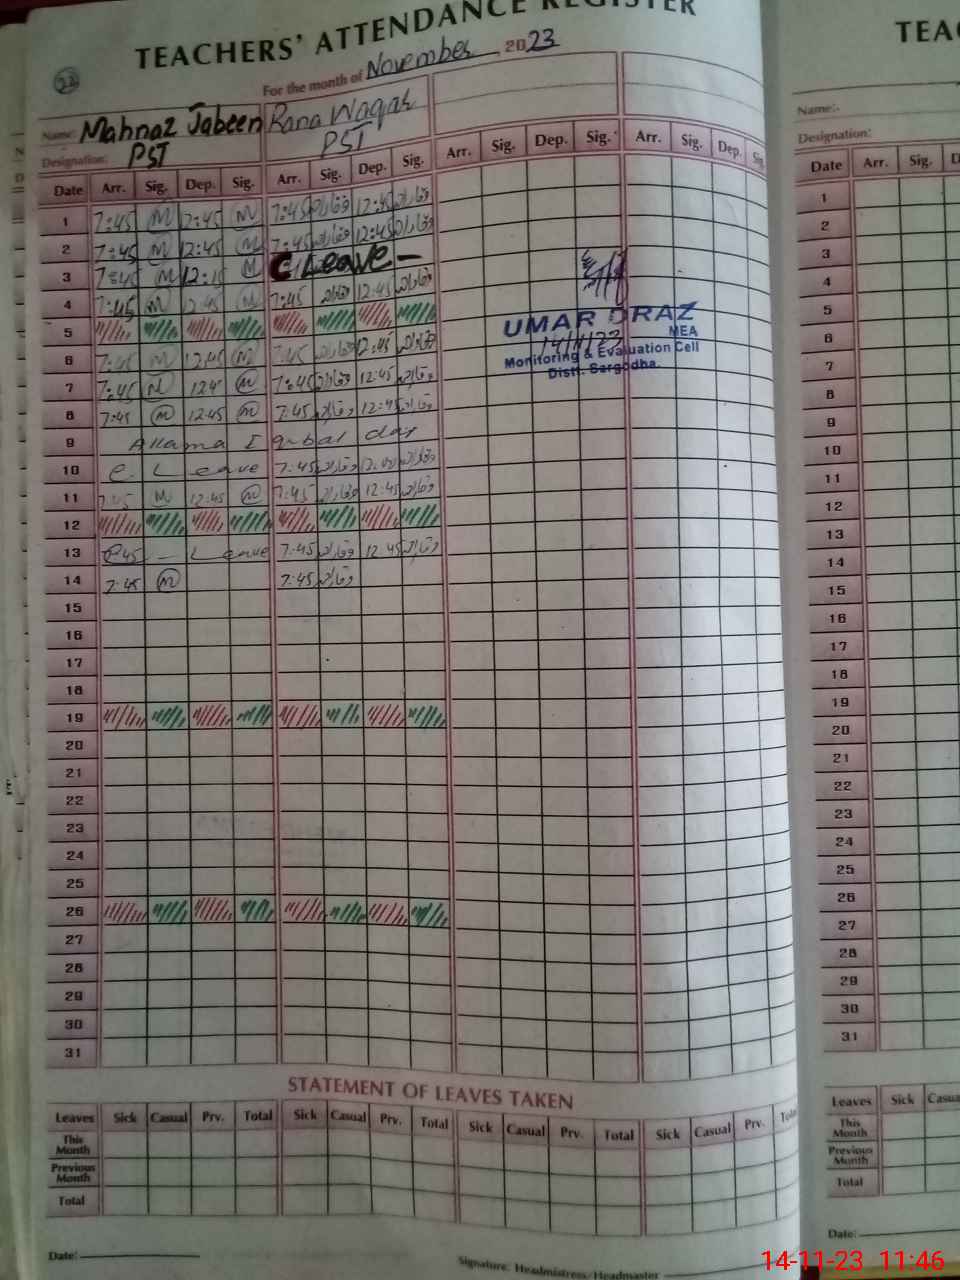 TEACHERS' ATTENDANCE REGISTER
22
For the month of November 2023
Name: Mahnaz Jabeen Rana Waqar
Designation: PST PST
Date Arr. Sig. Dep. Sig. Arr. Sig. Dep. Sig. Arr. Sig. Dep. Sig. Arr. Sig. Dep. Sig.
1 7:45 M 12:45 M 7:45 وقار 12:45 وقار
2 7:45 M 12:45 M 7:45 وقار 12:45 وقار
3 7:45 M M C Leave
4 7:45 M 12:45 M 7:45 وقار 12:45 وقار
5
6 7:45 M 12:45 M 7:45 وقار 12:45 وقار
7 7:45 M M 7:45 وقار 12:45 وقار
8 7:45 M 12:45 M 7:45 وقار 12:45 وقار
9 Allama Iqubal day
10 C. Leave 7:45 وقار وقار
11 7:45 M 12:45 M 7:45 وقار 12:45 وقار
12
13 Leave 7:45 وقار 12:45 وقار
14 7:45 M 7:45 وقار
15
16
17
18
19
20
21
22
23
24
25
26
27
28
29
30
31
UMAR DRAZ
MEA
14/11/23
Monitoring & Evaluation Cell
Distt. Sargodha.
STATEMENT OF LEAVES TAKEN
Leaves Sick Casual Prv. Total Sick Casual Prv. Total Sick Casual Prv. Total Sick Casual Prv. Total
This Month
Previous Month
Total
Date:
Signature: Headmistress/Headmaster
TEA
Name:-
Designation:
Date Arr. Sig. D
1
2
3
4
5
6
7
8
9
10
11
12
13
14
15
16
17
18
19
20
21
22
23
24
25
26
27
28
29
30
31
Leaves Sick Casua
This Month
Previous Month
Total
Date:
14-11-23 11:46